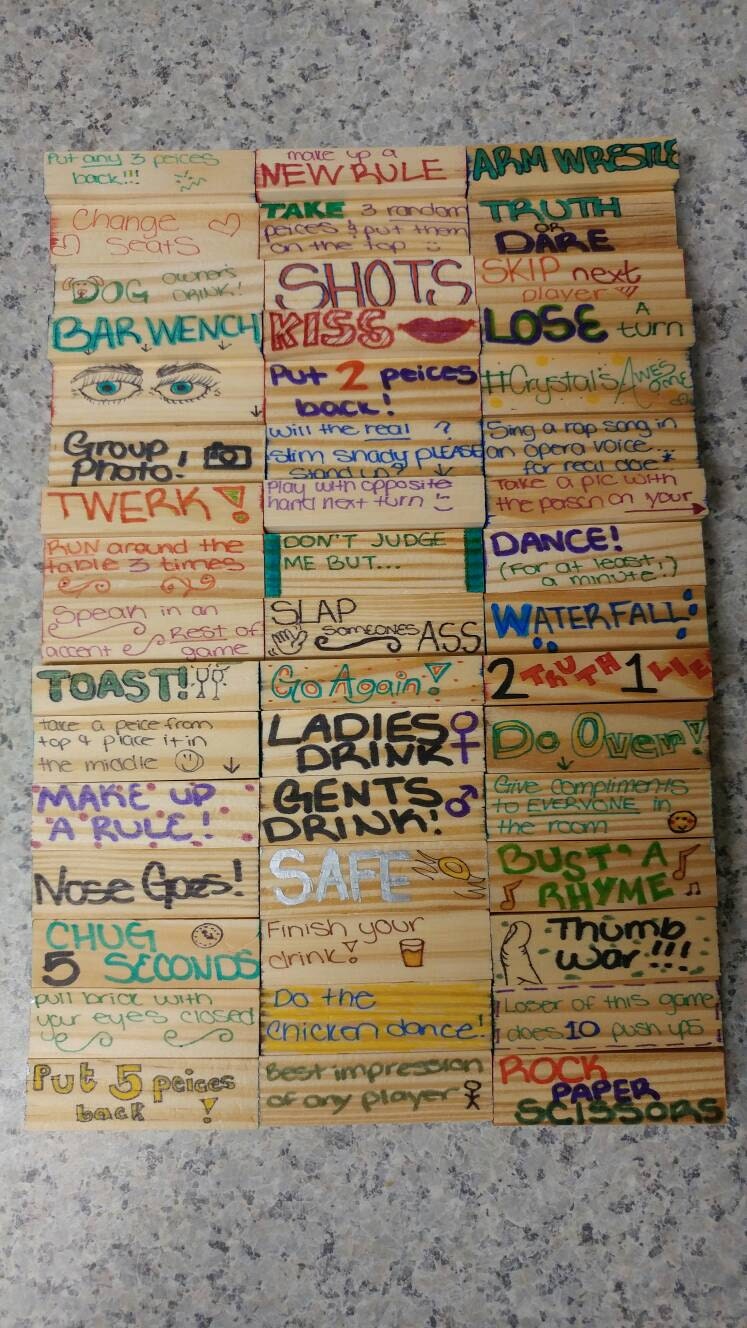 Put any 3 peices
back!!!
make up a
NEW RULE
ARM WRESTLE
Change
Seats
TAKE 3 random
peices & put them
on the top
TRUTH
OR
DARE
DOG owner's
DRINK!
SHOTS
SKIP next
player
BAR WENCH
KISS
LOSE A
turn
Put 2 peices
back!
#Crystal'sAwesome
Group
Photo!
will the real ?
Slim shady PLEASE
Stand up?
Sing a rap song in
an opera voice...
for real doe
TWERK!
Play with opposite
hand next turn
Take a pic with
the person on your
RUN around the
table 3 times
DON'T JUDGE
ME BUT...
DANCE!
(For at least
a minute!)
Speak in an
accent Rest of
game
SLAP
SOMEONES ASS
WATERFALL
TOAST!
Go Again!
2 TRUTH 1 LIE
take a peice from
top & place it in
the middle
LADIES
DRINK
Do Over!
MAKE UP
A RULE!
GENTS
DRINK!
Give compliments
to EVERYONE in
the room
Nose Goes!
SAFE
BUST A
RHYME
CHUG
5 SECONDS
Finish your
drink!
Thumb
War!!!
pull brick with
your eyes closed
Do the
Chicken dance!
Loser of this game
does 10 push ups
Put 5 peices
back !
Best impression
of any player
ROCK
PAPER
SCISSORS